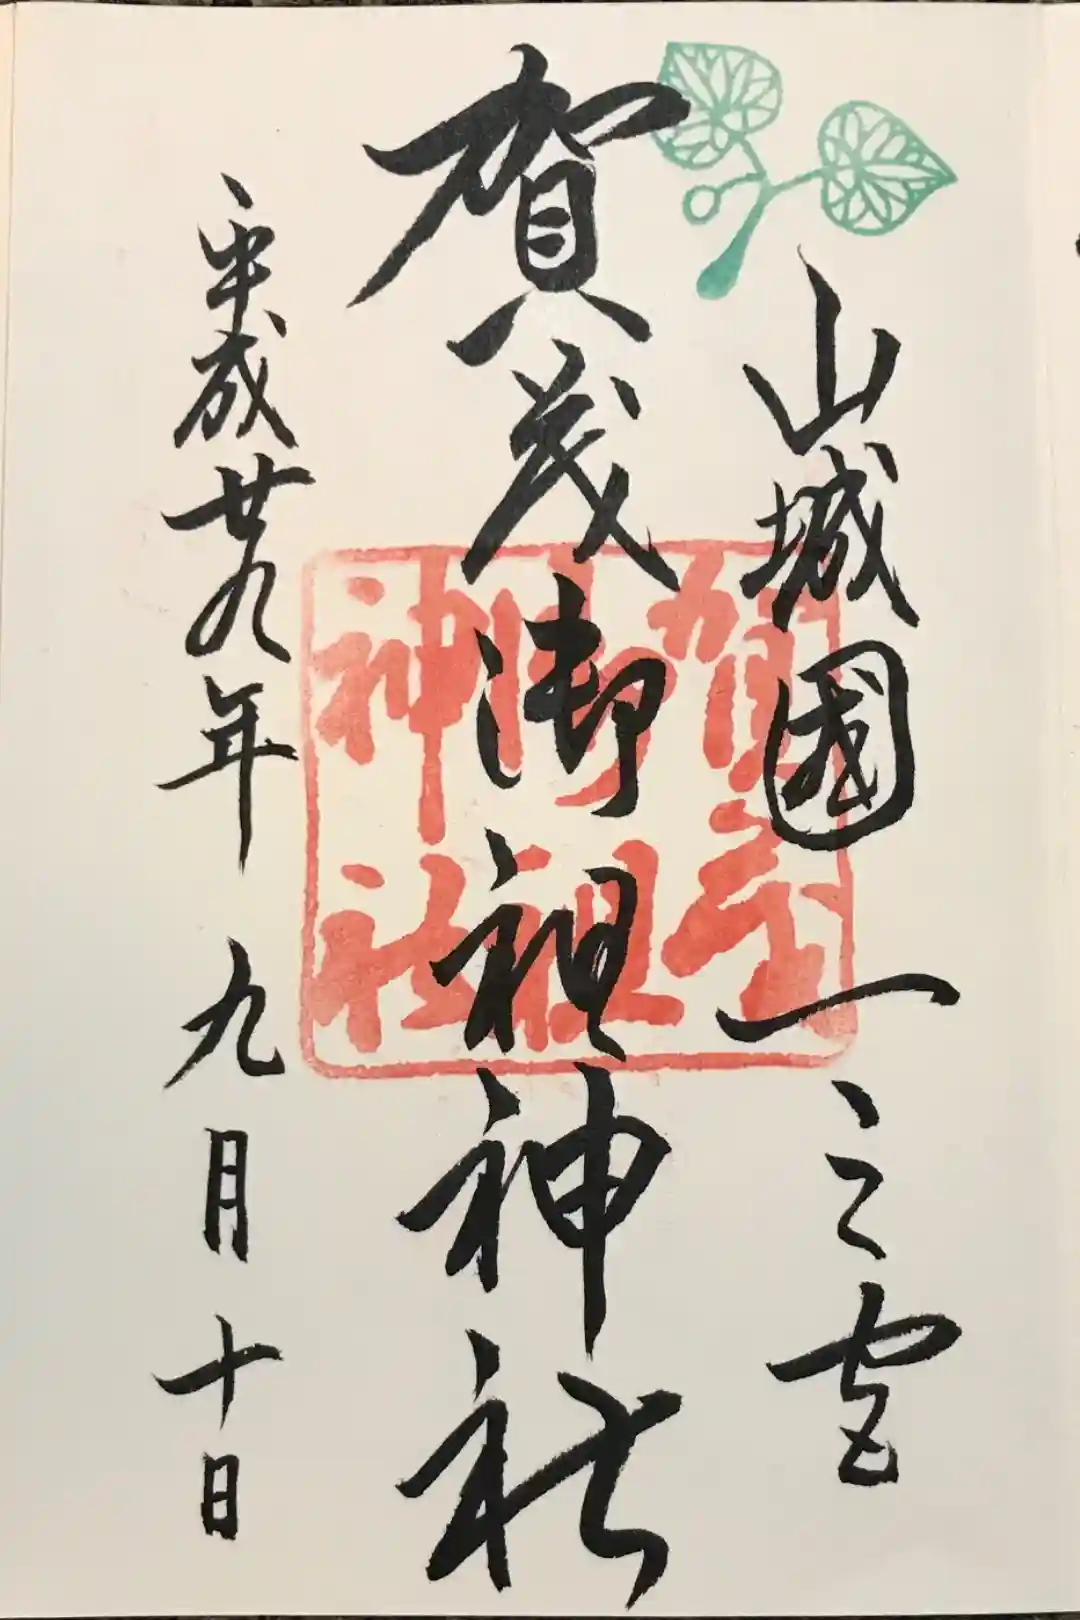 山城國一之宮
賀茂御祖神社
平成廿九年 九月十日
賀茂
御祖
神社